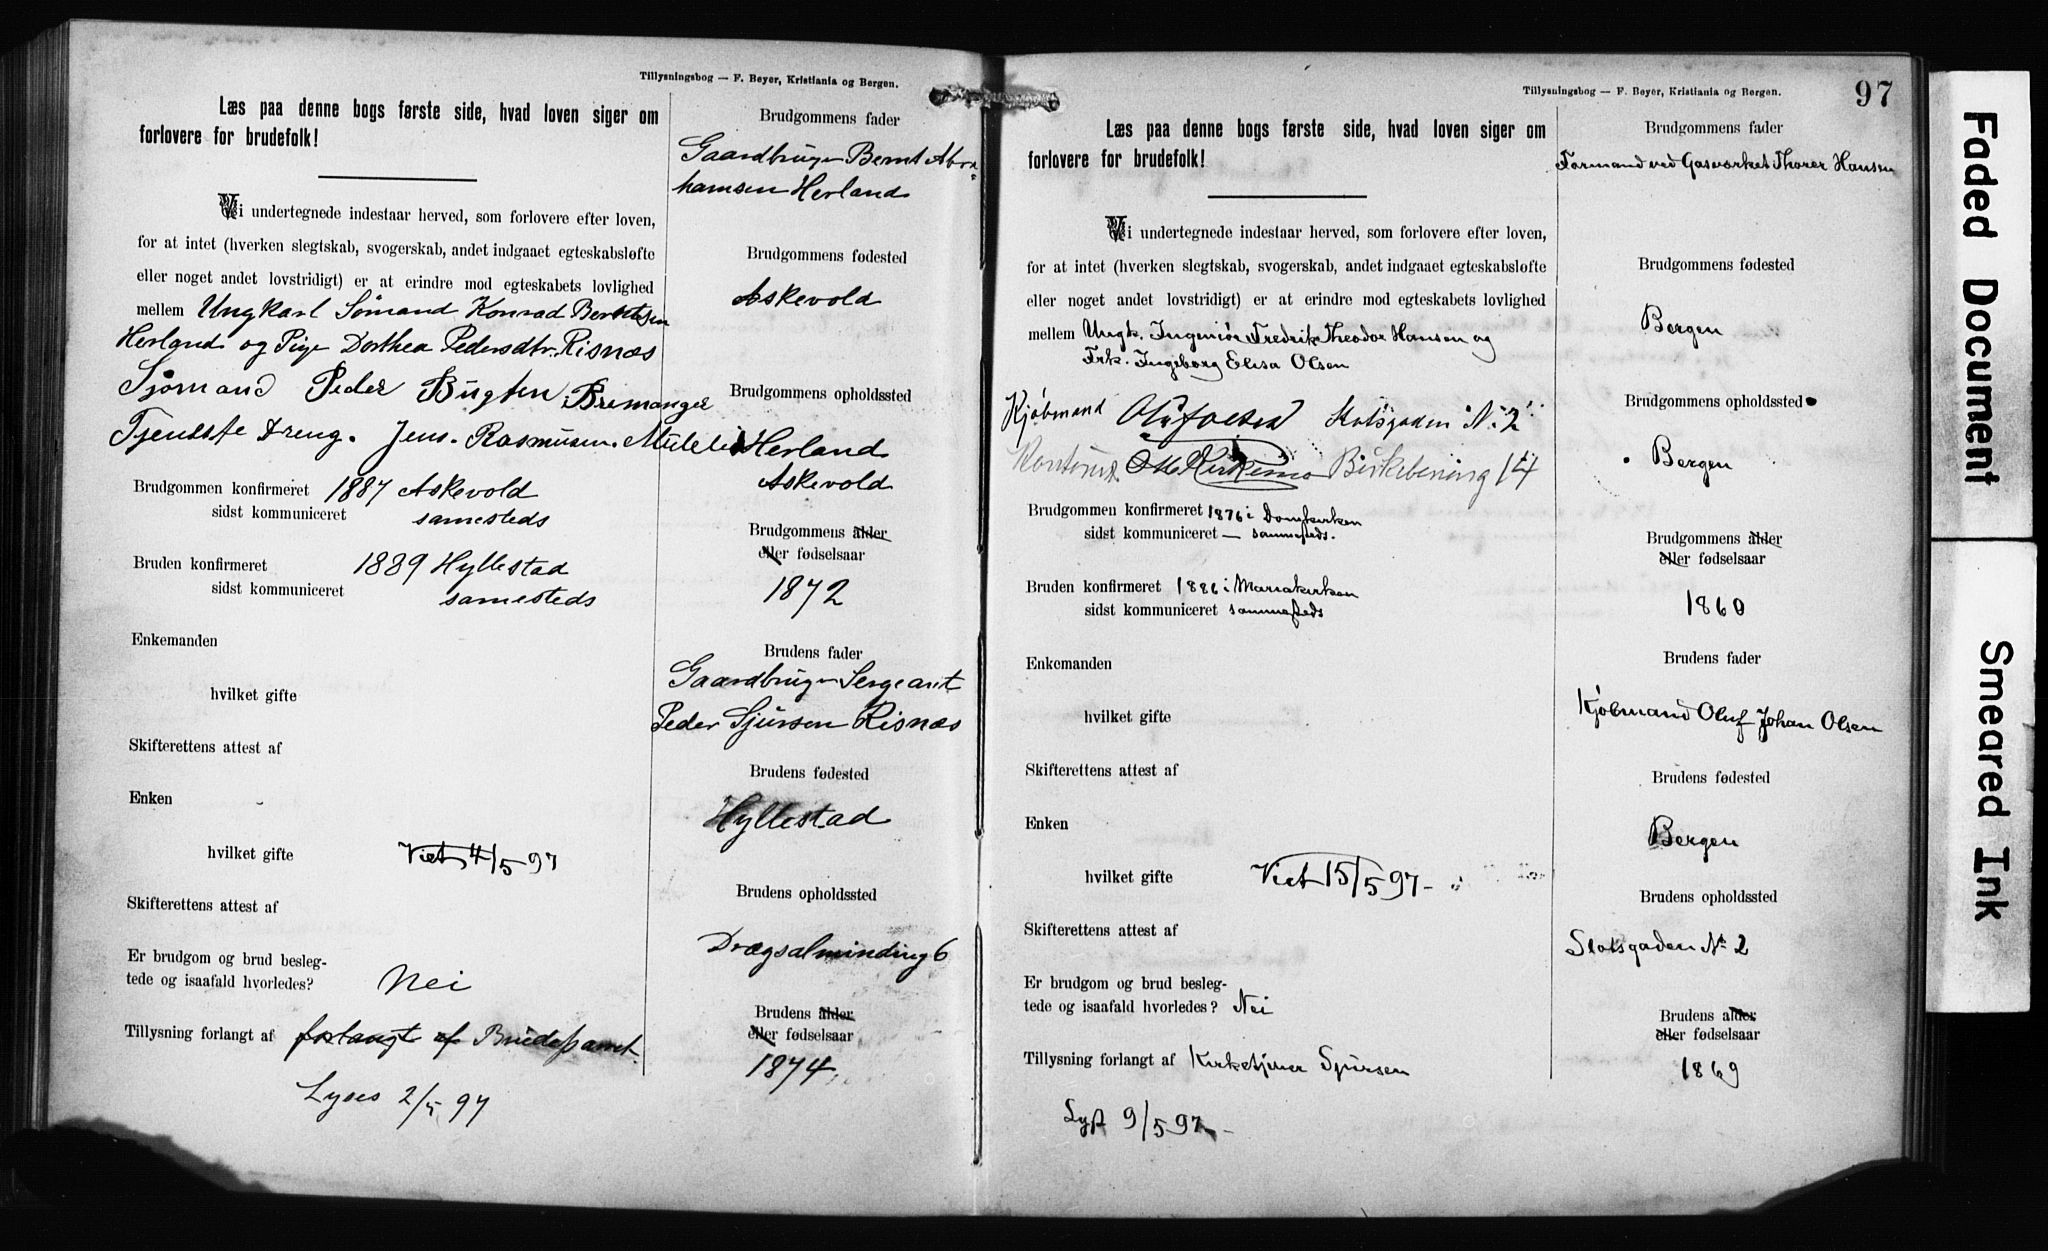 Tillysningsbog — F. Beyer, Kristiania og Bergen.
Læs paa denne bogs første side, hvad loven siger om
forlovere for brudefolk!
Vi undertegnede indestaar herved, som forlovere efter loven,
for at intet (hverken slegtskab, svogerskab, andet indgaaet egteskabsløfte
eller noget andet lovstridigt) er at erindre mod egteskabets lovlighed
mellem Ungkarl Sømand Konrad Berntsen
Herland og Pige Dorthea Pedersdtr. Risnæs
Sjømand Peder Bugten, Bremanger
Tjeneste dreng. Jens. Rasmusen.
Brudgommen konfirmeret 1887 Askevold
sidst kommuniceret samesteds
Bruden konfirmeret 1889 Hyllestad
sidst kommuniceret samesteds
Enkemanden
hvilket gifte
Skifterettens attest af
Enken
hvilket gifte Viet 4/5 97
Skifterettens attest af
Er brudgom og brud besleg-
tede og isaafald hvorledes? Nei
Tillysning forlangt af forlangt af Brudeparret
Lyses 2/5 97
Brudgommens fader
Gaardbruger Bernt Abra-
hamsen Herland
Brudgommens fødested
Askevold
Brudgommens opholdssted
Herland
Askevold
Brudgommens alder
eller fødselsaar
1872
Brudens fader
Gaardbruger Sergeant
Peder Sjursen Risnæs
Brudens fødested
Hyllestad
Brudens opholdssted
Drægsalminding 6
Brudens alder
eller fødselsaar
1874
Tillysningsbog — F. Beyer, Kristiania og Bergen.
97
Læs paa denne bogs første side, hvad loven siger om
forlovere for brudefolk!
Vi undertegnede indestaar herved, som forlovere efter loven,
for at intet (hverken slegtskab, svogerskab, andet indgaaet egteskabsløfte
eller noget andet lovstridigt) er at erindre mod egteskabets lovlighed
mellem Ungk. Ingeniør Fredrik Theodor Hansen og
Frk. Ingeborg Elisa Olsen
Kjøbmand Oluf Olsen Slotsgaden No. 2
Birkebeinerg 14
Brudgommen konfirmeret 1876 i Domkirken
sidst kommuniceret — sammesteds.
Bruden konfirmeret 1886 i Mariakirken
sidst kommuniceret sammesteds
Enkemanden
hvilket gifte
Skifterettens attest af
Enken
hvilket gifte Viet 15/5 97 -
Skifterettens attest af
Er brudgom og brud besleg-
tede og isaafald hvorledes? Nei
Tillysning forlangt af Kirketjener Sjursen
Lyst 9/5 97 -
Brudgommens fader
Formand ved Gasværket Thorer Hansen
Brudgommens fødested
Bergen
Brudgommens opholdssted
Bergen
Brudgommens alder
eller fødselsaar
1860
Brudens fader
Kjøbmand Oluf Johan Olsen
Brudens fødested
Bergen
Brudens opholdssted
Slotsgaden No 2
Brudens alder
eller fødselsaar
1869
Faded Document
Smeared Ink